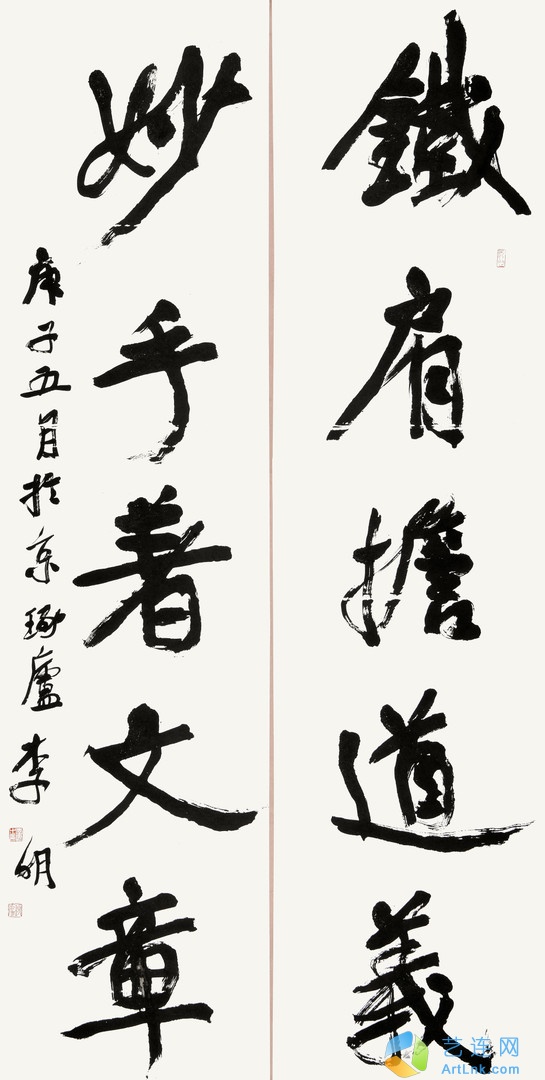 鐵肩擔道義
妙手著文章
庚子五月於京琢廬李明
艺连网
ArtLnk.com